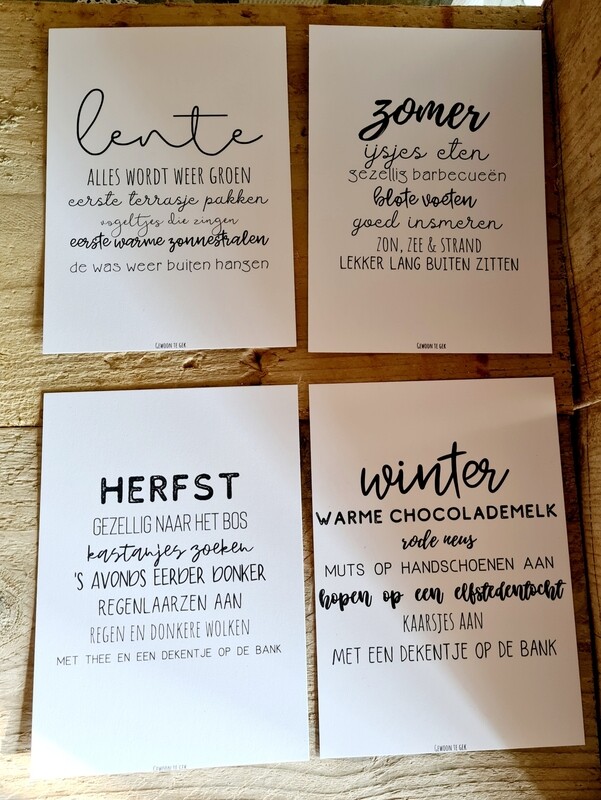 lente
ALLES WORDT WEER GROEN
eerste terrasje pakken
vogeltjes die zingen
eerste warme zonnestralen
de was weer buiten hangen
GEWOON TE GEK
zomer
ijsjes eten
gezellig barbecueën
blote voeten
goed insmeren
ZON, ZEE & STRAND
LEKKER LANG BUITEN ZITTEN
GEWOON TE GEK
HERFST
GEZELLIG NAAR HET BOS
kastanjes zoeken
'S AVONDS EERDER DONKER
REGENLAARZEN AAN
REGEN EN DONKERE WOLKEN
MET THEE EN EEN DEKENTJE OP DE BANK
GEWOON TE GEK
winter
WARME CHOCOLADEMELK
rode neus
MUTS OP HANDSCHOENEN AAN
hopen op een elfstedentocht
KAARSJES AAN
MET EEN DEKENTJE OP DE BANK
GEWOON TE GEK